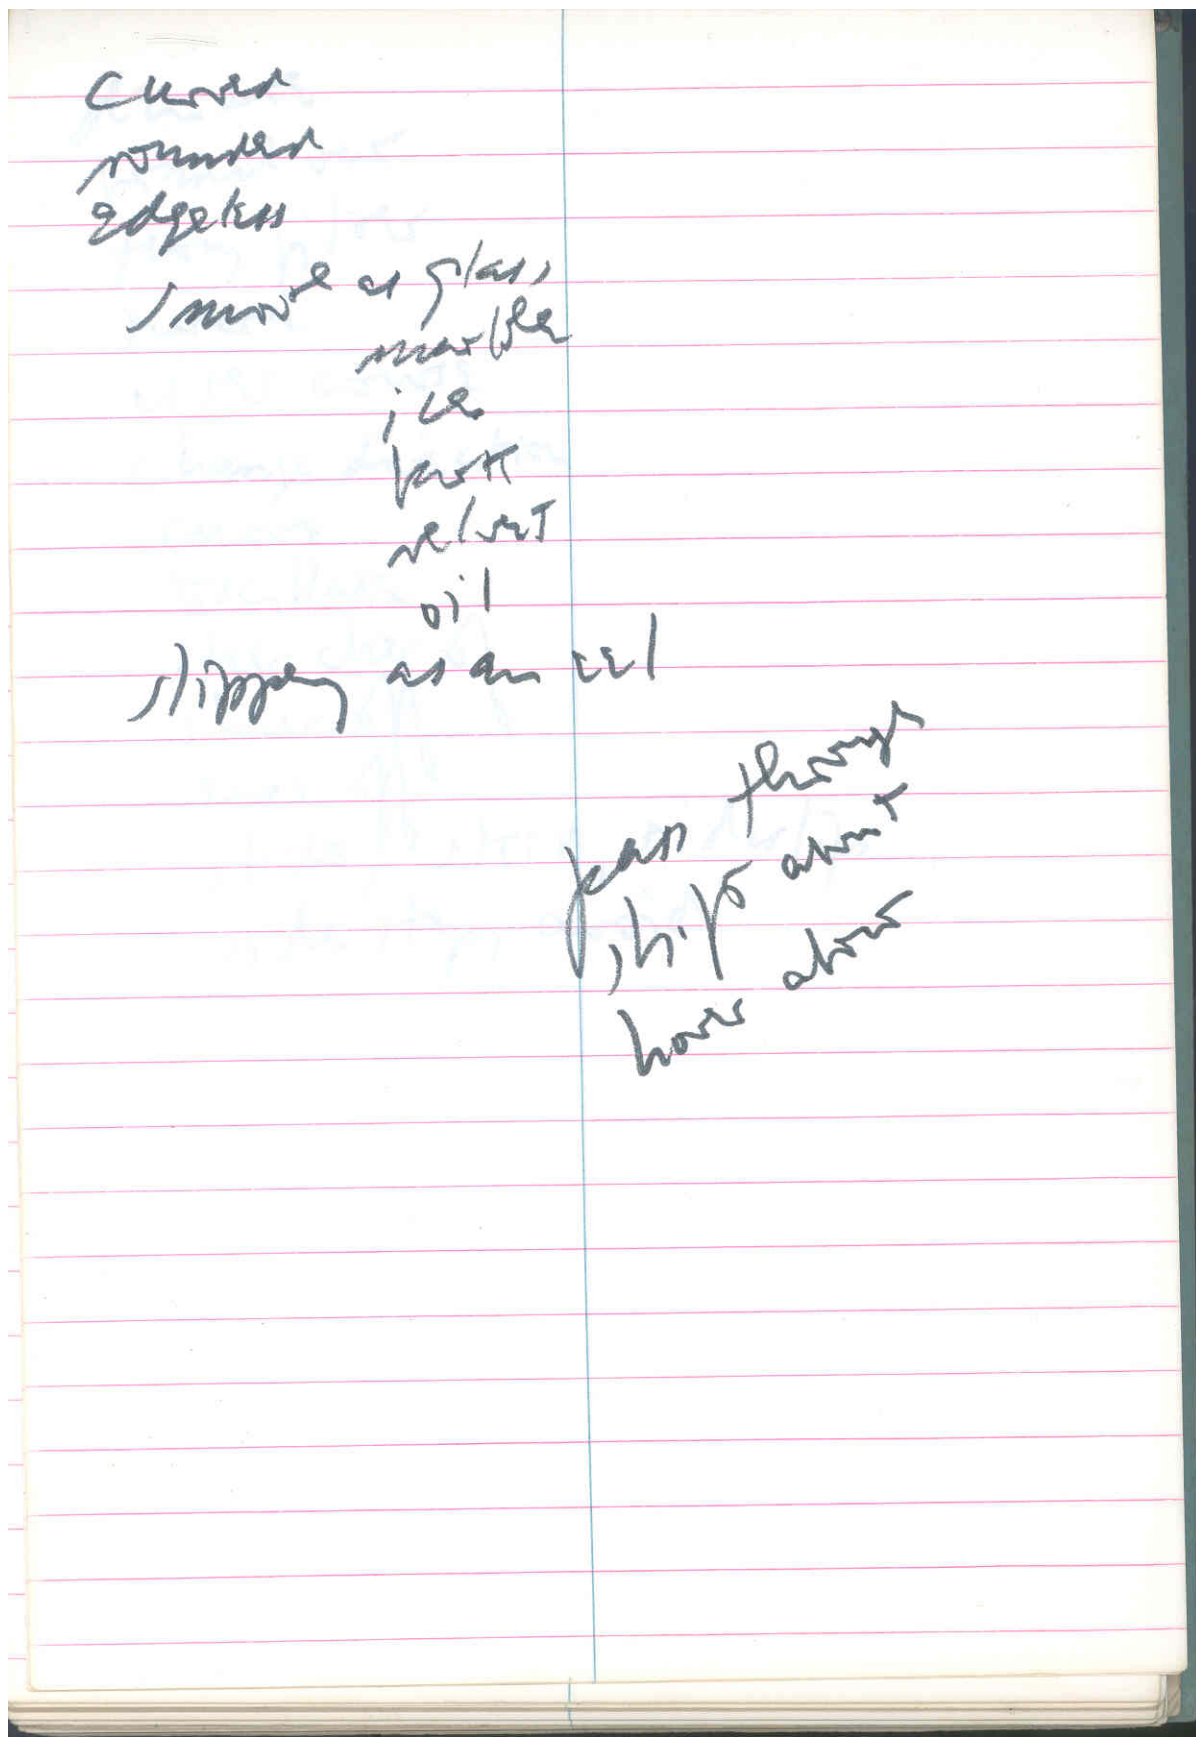 curved
rounded
edgeless
smooth as glass
marble
ice
velvet
oil
slippery as an eel
pass through
shift about
hover above